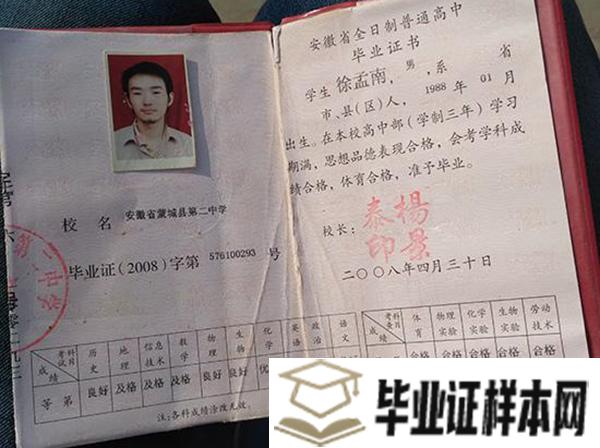 安徽省全日制普通高中
毕业证书
学生徐孟南,男,系 省
市、县(区)人,1988年01月
出生。在本校高中部(学制三年)学习
期满,思想品德表现合格,会考学科成
绩合格,体育合格,准予毕业。
校长:
泰楊
印景
二〇〇八年四月三十日
校名 安徽省蒙城县第二中学
毕业证(2008)字第 576100293 号
成绩 历史 地理 信息技术 数学 物理 生物 化学 英语 政治 语文
等第 良好 及格 及格 及格 良好 良好
注:各科成绩涂改无效。
成绩 体育 物理实验 化学实验 生物实验 劳动技术
合格 合格 合格
毕业证样本网